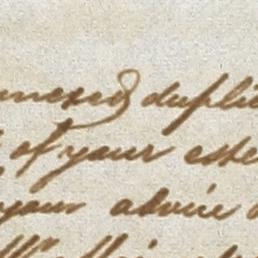 annexed duplic
of your este
your advice